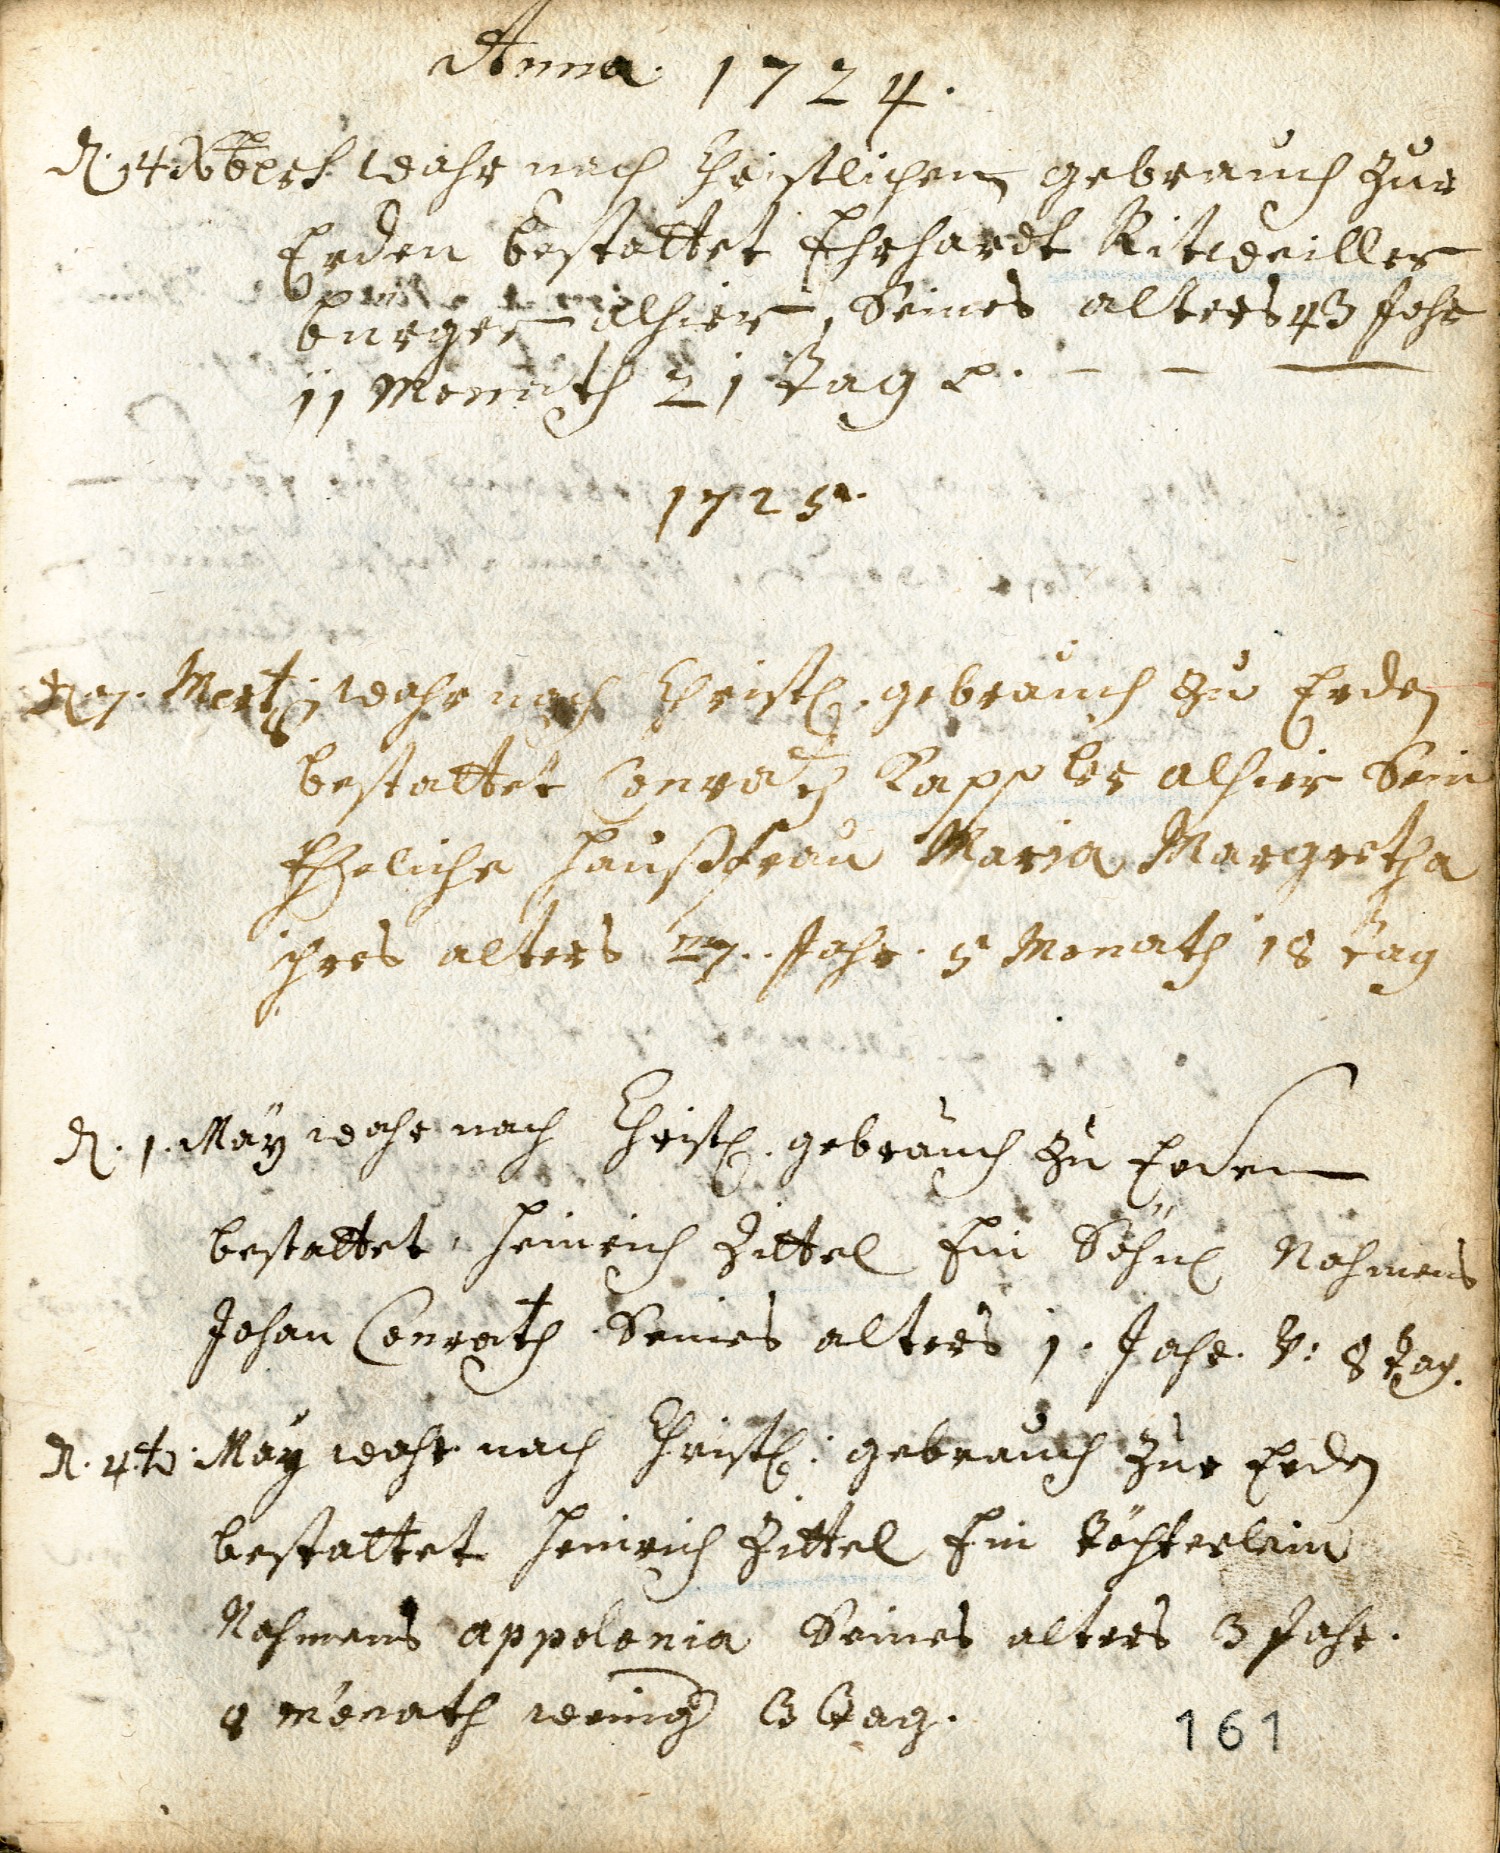 Anna. 1724.
D. 14. wahr nach Christlichen gebrauch zur
Erden bestattet Ehrhardt Ritweiller
burger alhier, Seines alters 43 Jahr
11 Monath 21 Tag
1725.
D 7. Mertz wahr nach Christl. gebrauch zu Erden
bestattet Conrath Kappler alhier Sein
Eheliche haußfrau Maria Margretha
ihres alters 27. Jahr. 5 Monath 18 tag
D. 1. Maÿ wahr nach Christl. gebrauch zu Erden
bestattet, Heinrich Zittel Ein Söhnl Nahmens
Johan Conrath Seines alters 1. Jahr. v: 8 tag.
D. 4t. May wahr nach Christl: gebrauch zur Erden
bestattet Heinrich Zittel Ein töchterlein
Nahmens appolonia Seines alters 3 Jahr.
8 monath wenig 3 tag.
161